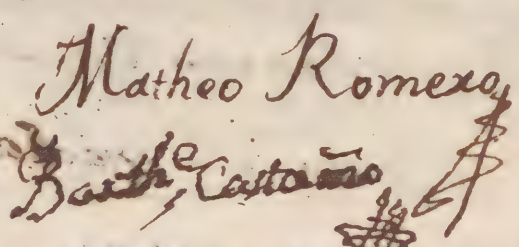 Matheo Romero
Barthe Castaño